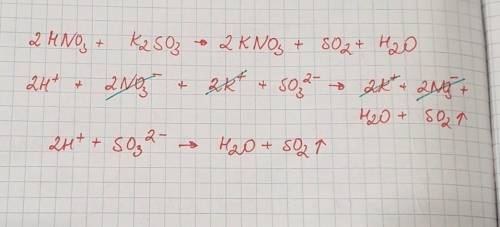 2HNO₃ + K₂SO₃ → 2KNO₃ + SO₂ + H₂O
2H⁺ + 2NO₃⁻ + 2K⁺ + SO₃²⁻ → 2K⁺ + 2NO₃⁻ +
H₂O + SO₂↑
2H⁺ + SO₃²⁻ → H₂O + SO₂↑